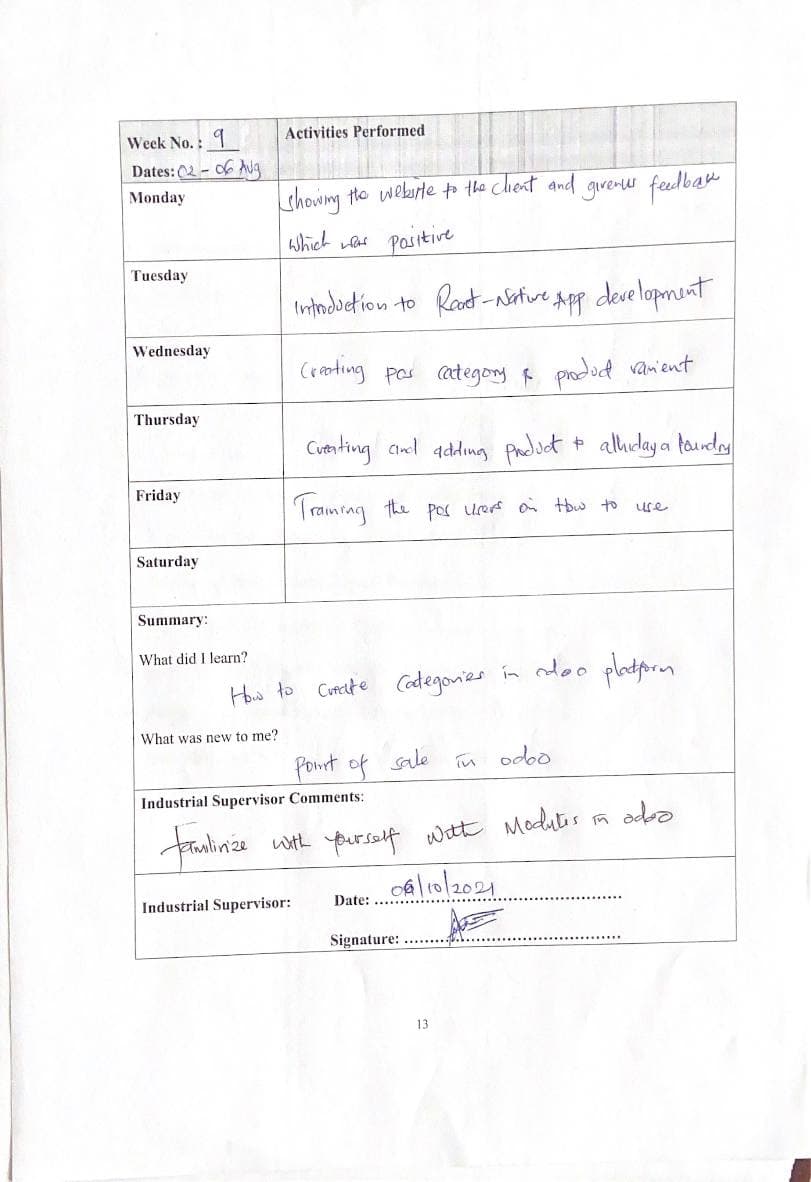 Week No. : 9
Activities Performed
Dates: 02 - 06 Aug
Monday
Showing the website to the client and givenus feedback
which was positive
Tuesday
Introduction to React-Native App development
Wednesday
Creating pos category & product varient
Thursday
Creating and adding product to alhidaya laundry
Friday
Training the pos users on How to use
Saturday
Summary:
What did I learn?
How to create Categories in odoo platform
What was new to me?
Point of sale in odoo
Industrial Supervisor Comments:
familirize with yourself with Modules in odoo
Industrial Supervisor:
Date: /10/2021
Signature:
13